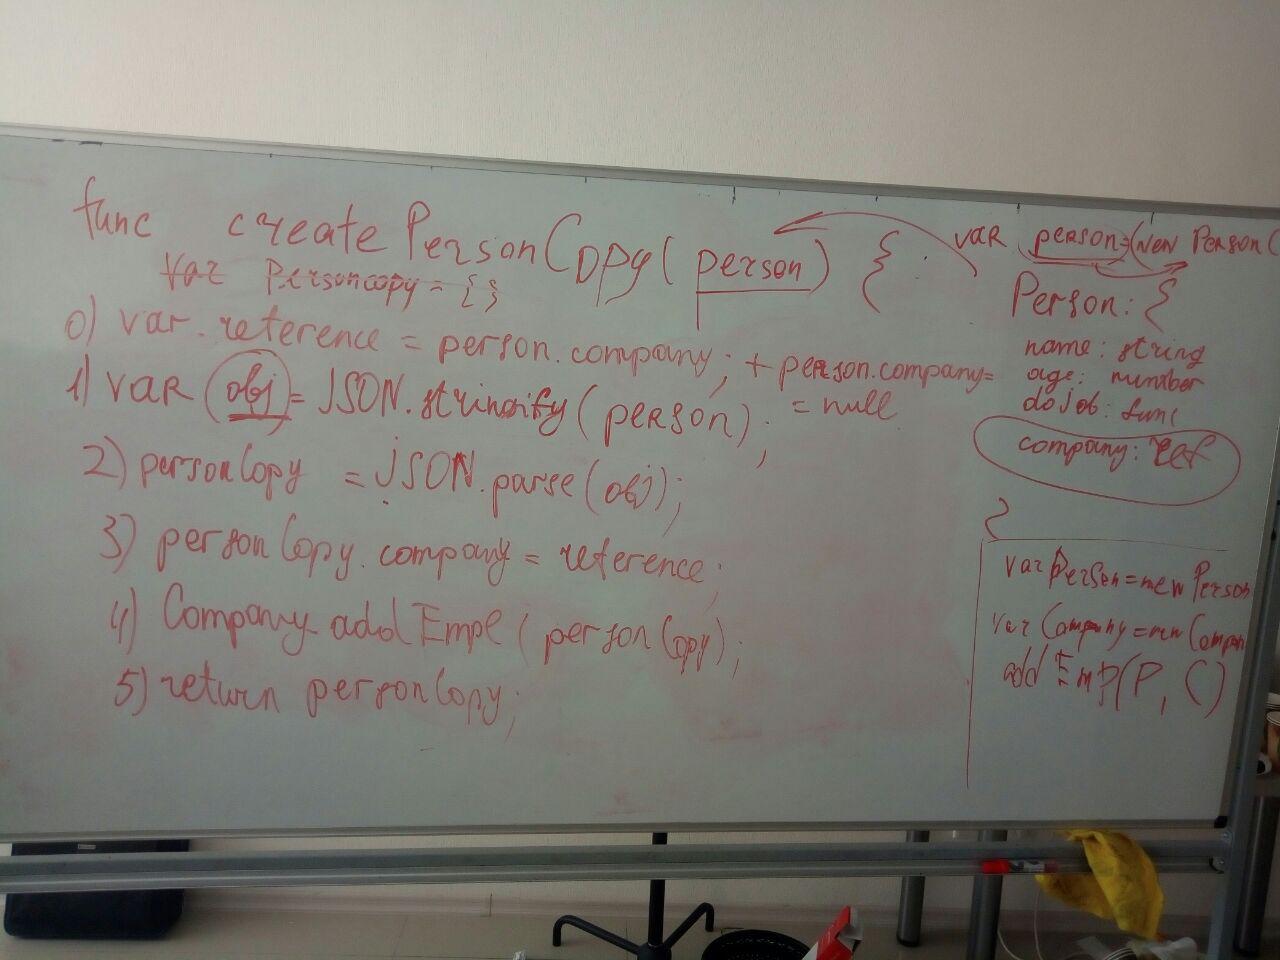 func createPersonCopy(person) {
var personcopy = {};
0) var reference = person.company; + person.company=
= null
1) var obj = JSON.stringify(person);
2) personCopy = JSON.parse(obj);
3) personCopy.company = reference;
4) Company addEmpl(personCopy);
5) return personCopy;
var person=(new Person(
Person: {
name: string
age: number
dojob: func
company: ref
}
var Person=new Person
var Company=new Compan
add Emp(P, C)